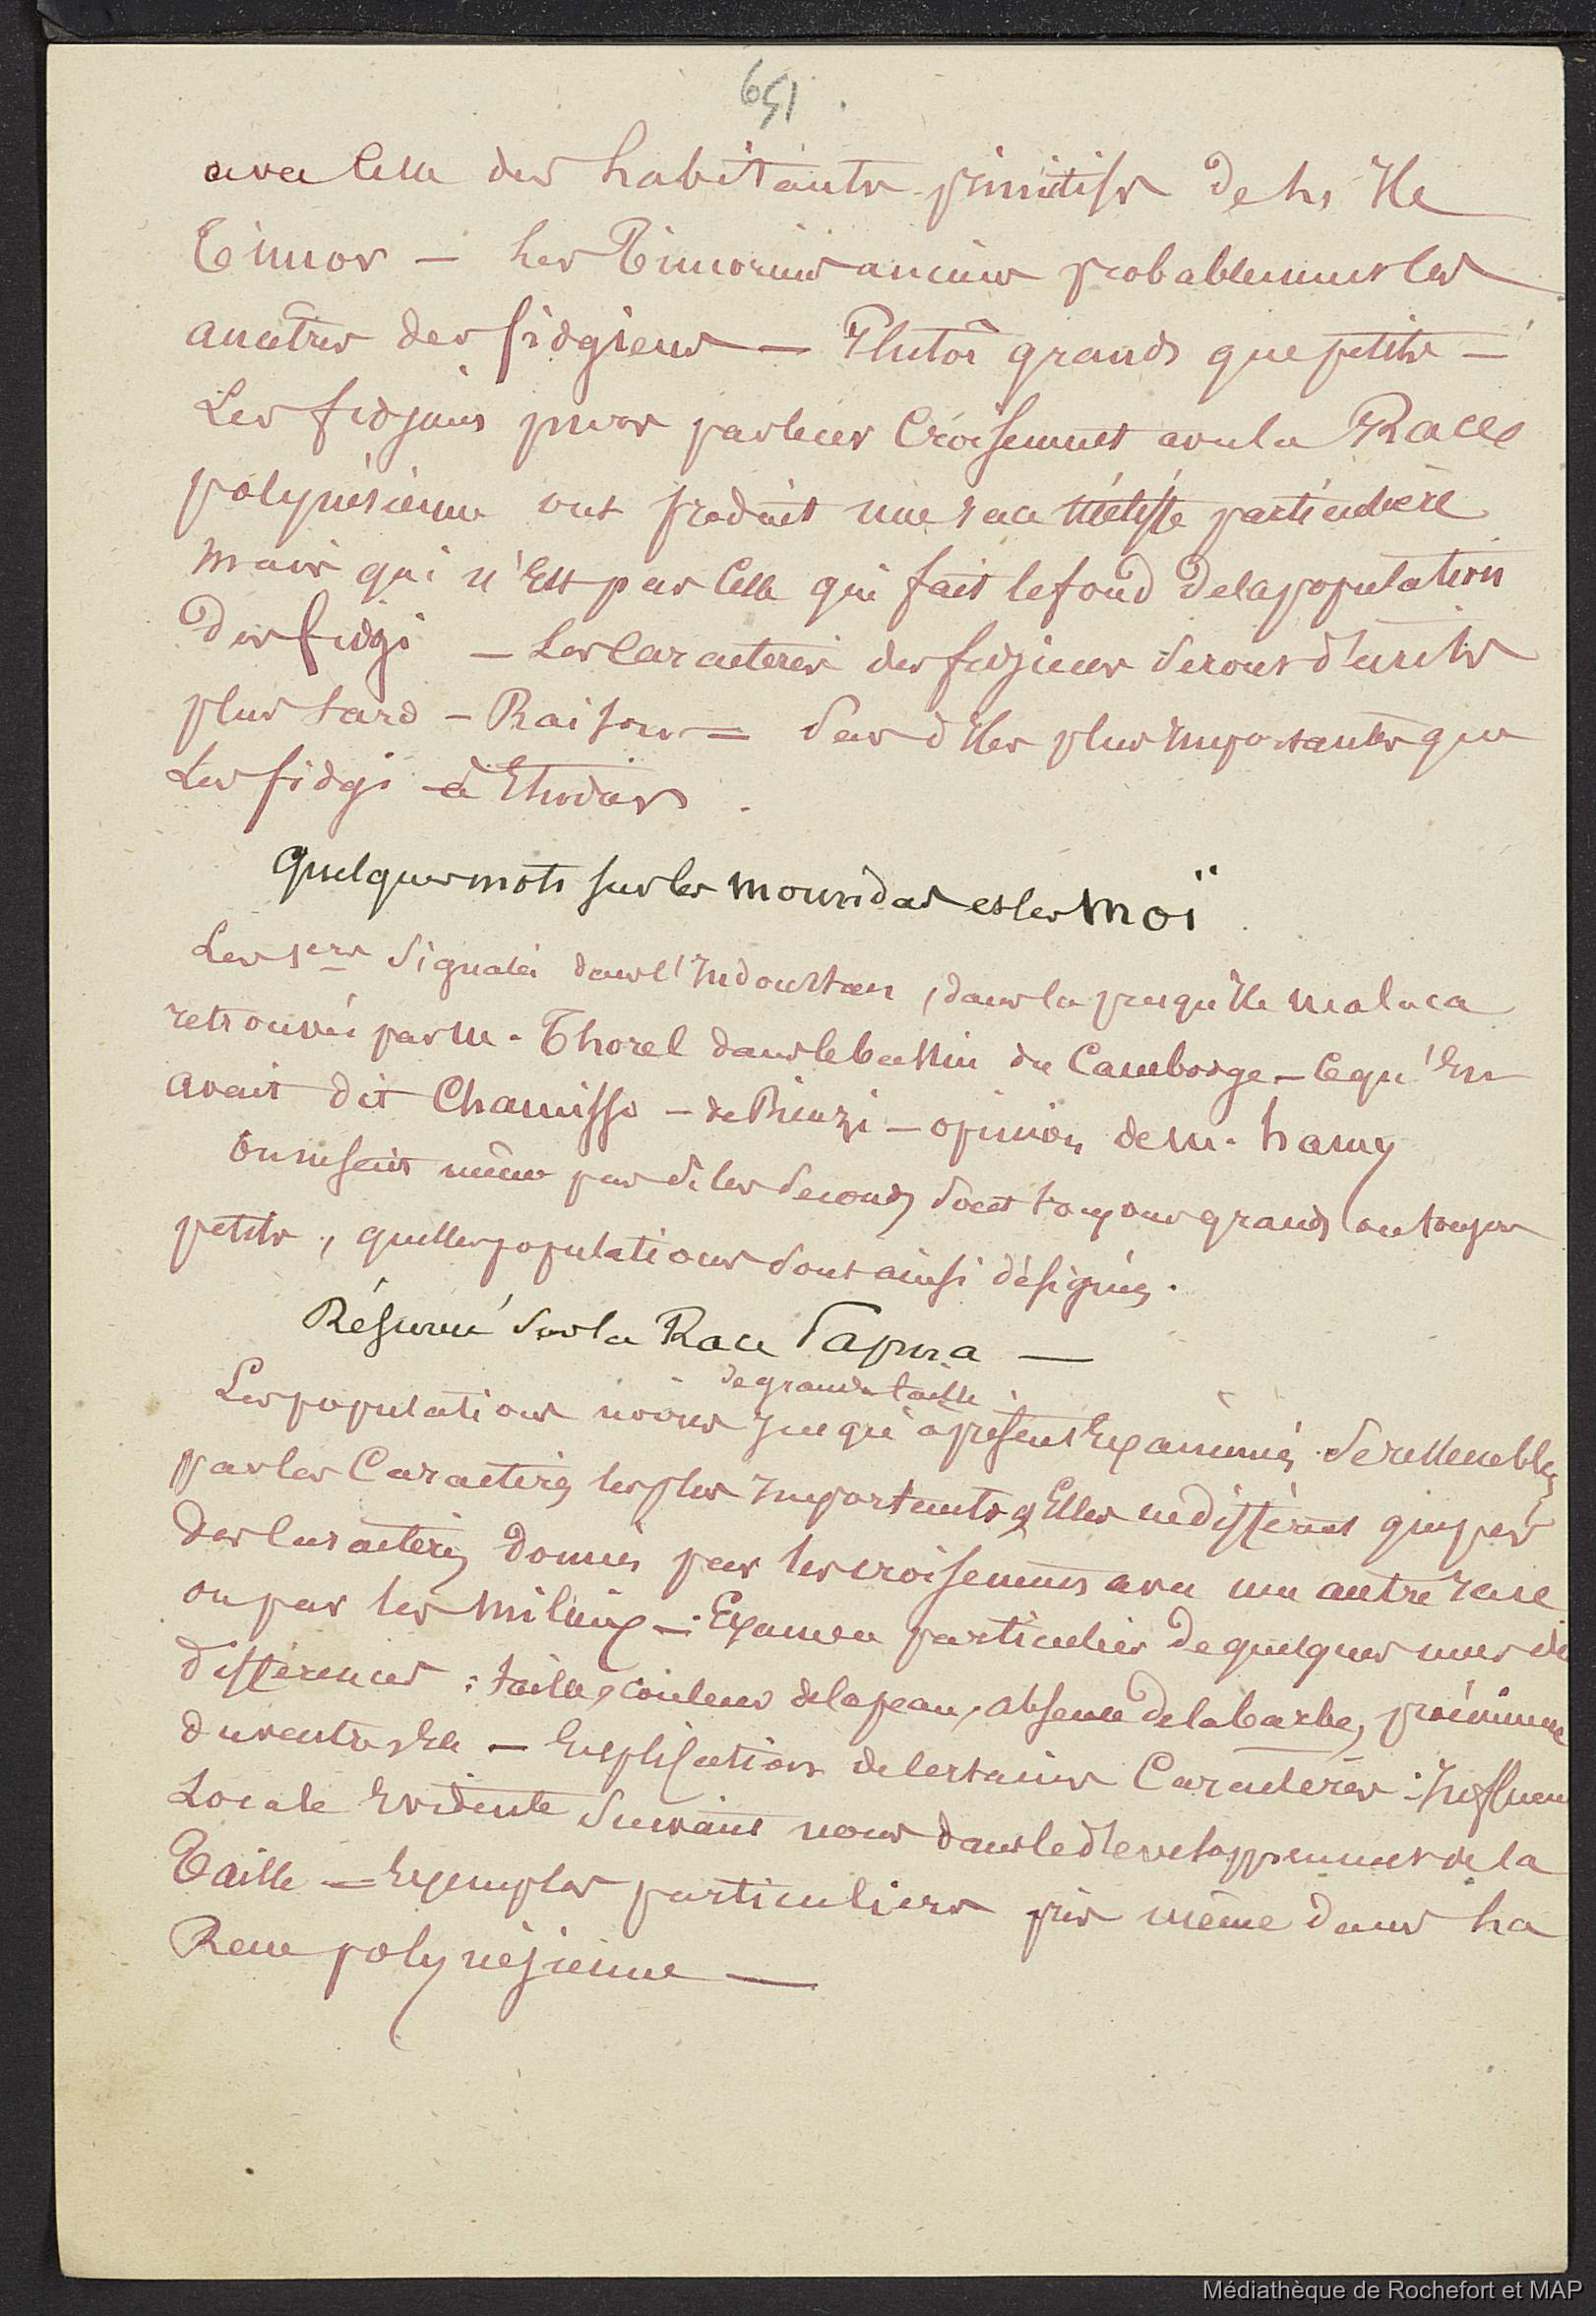 651
avec celle des habitants primitifs de l'Ile
Timor — Les Timoriens anciens probablement les
ancêtres des fidgiens — Plutôt grands que petits —
Les fidjiens purs par leur croisement avec la Race
polynésienne ont produit une race métisse particulière
mais qui n'est pas celle qui fait le fond de la population
des fidgi — Les caractères des fidjiens seront décrits
plus tard — Raison = Pas d'Iles plus importantes que
Les fidgi à Etudier.
Quelques mots sur les moundas et les moï
Les 1ers Signalés dans l'Indoustan, dans la presqu'Ile malaca
retrouvés par m. Thorel dans le bassin du Cambodge — Ce qu'en
avait dit Chamisso — de Rienzi — opinion de m. hamy
On ne sait même pas si les seconds sont toujours grands ou toujours
petits, quelles populations sont ainsi désignées.
Résumé sur la Race Papua —
de grande taille
Les populations noires jusqu'à présent Examinées se ressemblent
par les Caractères les plus Importants & Elles ne diffèrent que par
des caractères donnés par les croisements avec une autre race
ou par les milieux — Examen particulier de quelques unes de
différences : taille, couleur de la peau, absence de la barbe, proéminence
du ventre, etc — Explication de certains Caractères : Influence
Locale Evidente Suivant nous dans le développement de la
Taille — Exemples particuliers pris même dans la
Race polynésienne —
Médiathèque de Rochefort et MAP